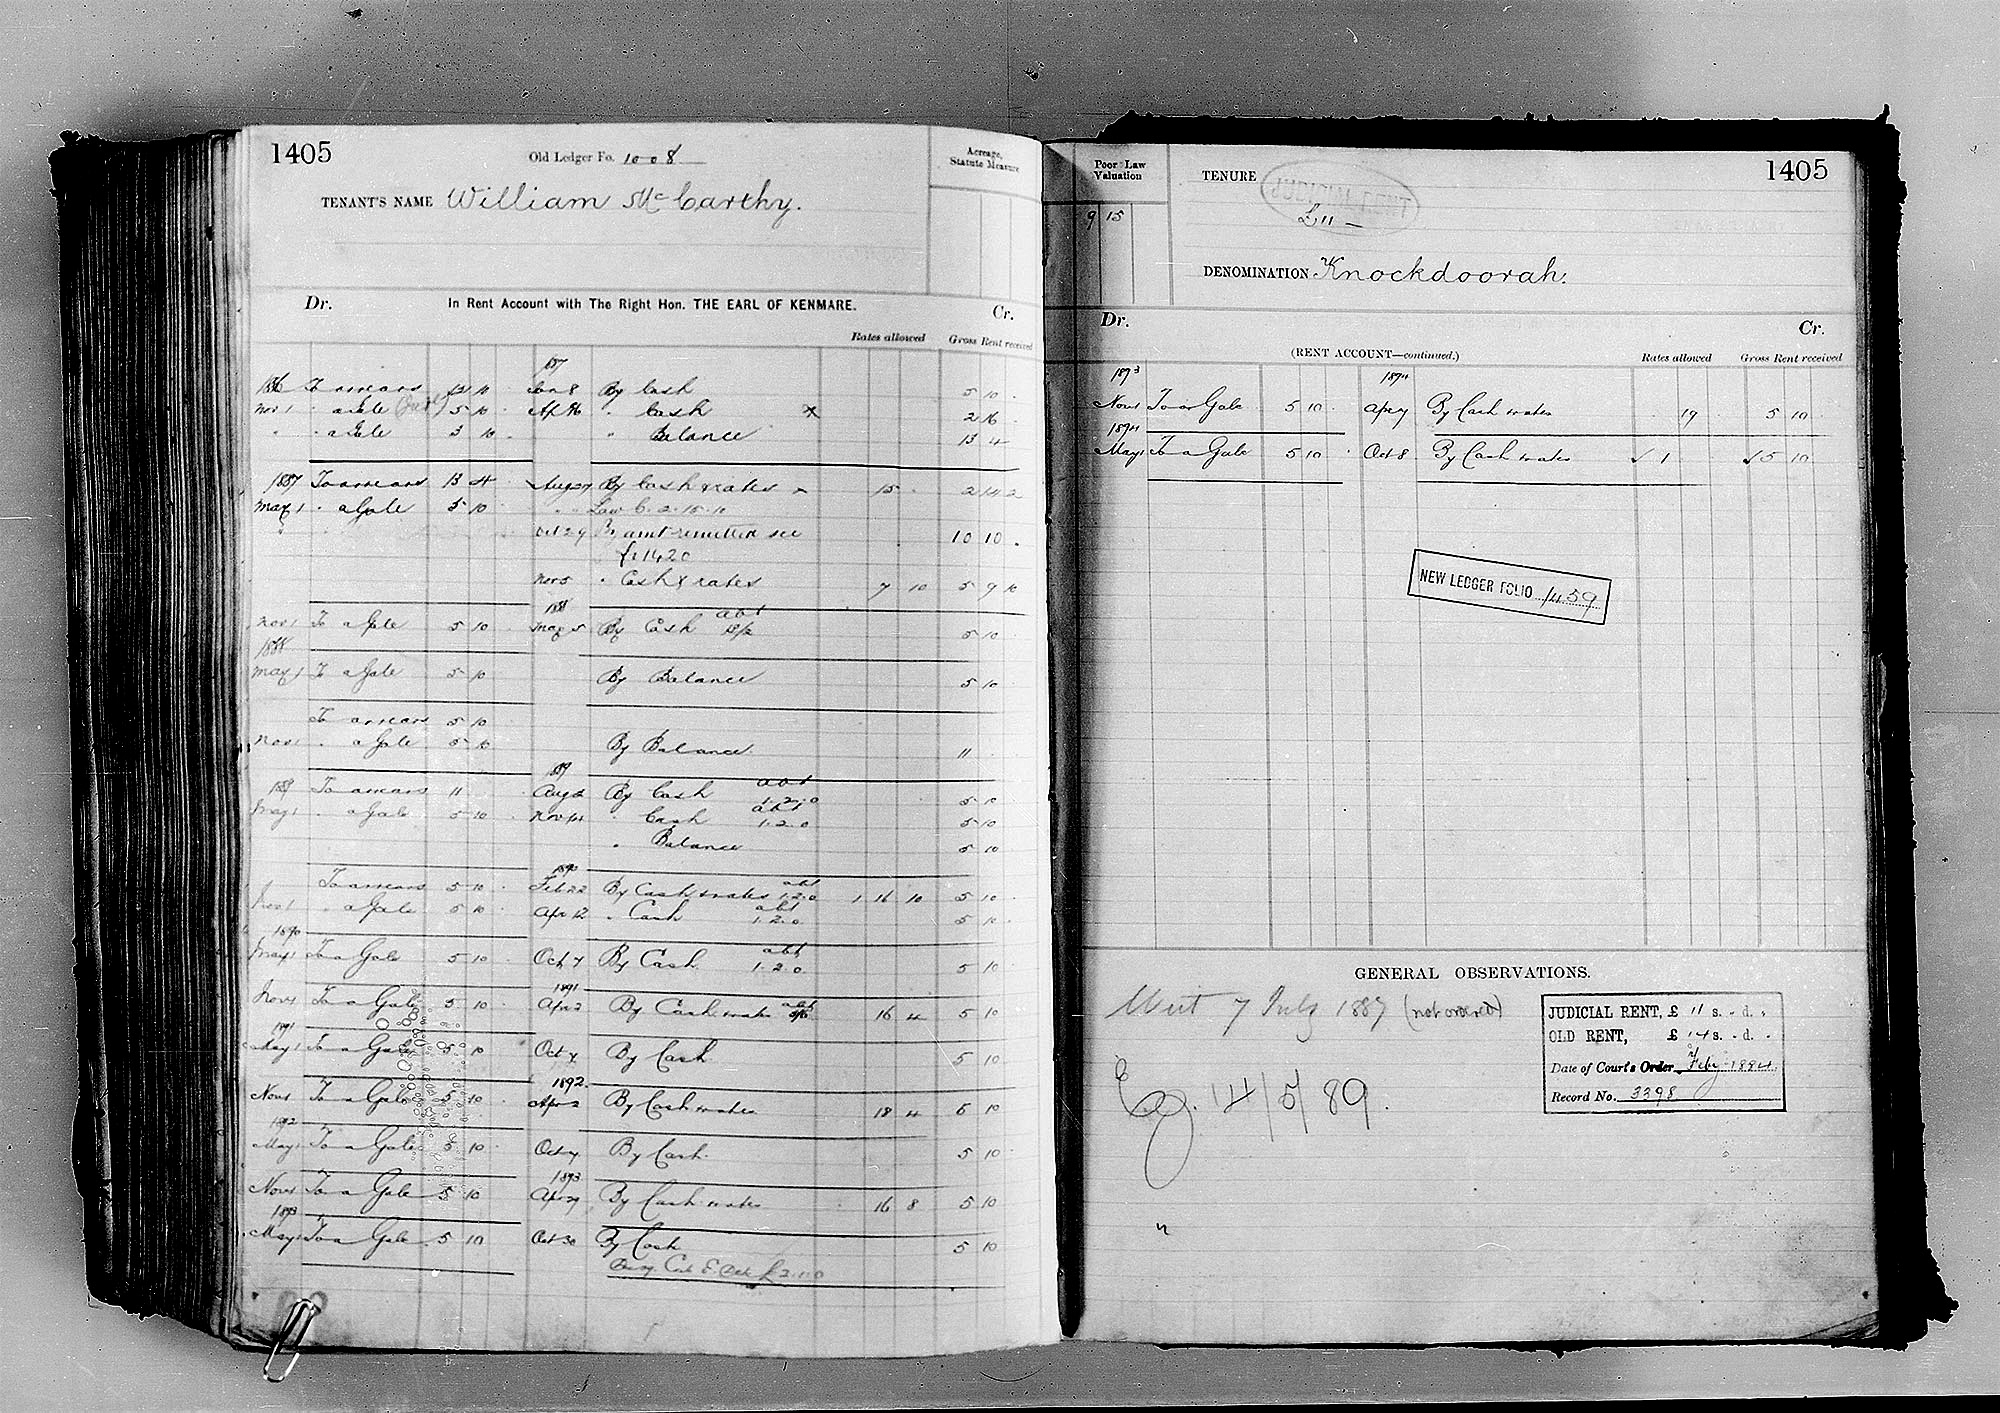 1405
Old Ledger Fo. 1008
Acreage, Statute Measure
TENANT'S NAME William McCarthy.
Dr. In Rent Account with The Right Hon. THE EARL OF KENMARE. Cr.
Rates allowed Gross Rent received
1887
1886 To arrears 13 10 Jan 8 By Cash 5 10
Nov 1 " a Gale 5 10 Ap 26 " Cash 2 16
" " a Gale 5 10 " Balance 13 4
1887 To arrears 13 4 Aug 27 By Cash & rates 15 2 14 2
May 1 " a Gale 5 10 Law C. 2.15.10
Oct 29 By amt remitted see 10 10
fo 1420
Nov 5 " Cash & rates 7 10 5 9 10
1888 abt
Nov 1 To a Gale 5 10 May 5 By Cash 5 10
1888
May 1 To a Gale 5 10 By Balance 5 10
To arrears 5 10
Nov 1 " a Gale 5 10 By Balance 11
1889 abt
1889 To arrears 11 Aug 2 By Cash 1.2.0 5 10
abt
May 1 " a Gale 5 10 Nov 14 " Cash 1.2.0 5 10
" Balance 5 10
1890 abt
To arrears 5 10 Feb 22 By Cash & rates 1.2.0 1 16 10 5 10
abt
Nov 1 " a Gale 5 10 Apr 12 " Cash 1.2.0 5 10
1890 abt
May 1 To a Gale 5 10 Oct 7 By Cash 1.2.0 5 10
1891 abt
Nov 1 To a Gale 5 10 Apr 2 By Cash & rates 16 4 5 10
1891
May 1 To a Gale 5 10 Oct 7 By Cash 5 10
1892
Nov 1 To a Gale 5 10 Apr 2 By Cash & rates 18 4 5 10
1892
May 1 To a Gale 5 10 Oct 7 By Cash 5 10
1893
Nov 1 To a Gale 5 10 Apr 29 By Cash & rates 16 8 5 10
1893
May 1 To a Gale 5 10 Oct 30 By Cash 5 10
£2.1.0
Poor Law Valuation
9 15
TENURE
JUDICIAL RENT
£11 —
1405
DENOMINATION Knockdoorah.
Dr. Cr.
(RENT ACCOUNT—continued.) Rates allowed Gross Rent received
1893 1894
Nov 1 To a Gale 5 10 Apr 7 By Cash & rates 19 5 10
1894
May 1 To a Gale 5 10 Oct 8 By Cash & rates 1 5 10
NEW LEDGER FOLIO 1459
GENERAL OBSERVATIONS.
Writ 7 July 1887 (not ordered)
14/5/89.
JUDICIAL RENT, £ 11 s. - d. -
OLD RENT, £ 14 s. - d. -
Date of Court's Order Feby 1884
Record No. 3398